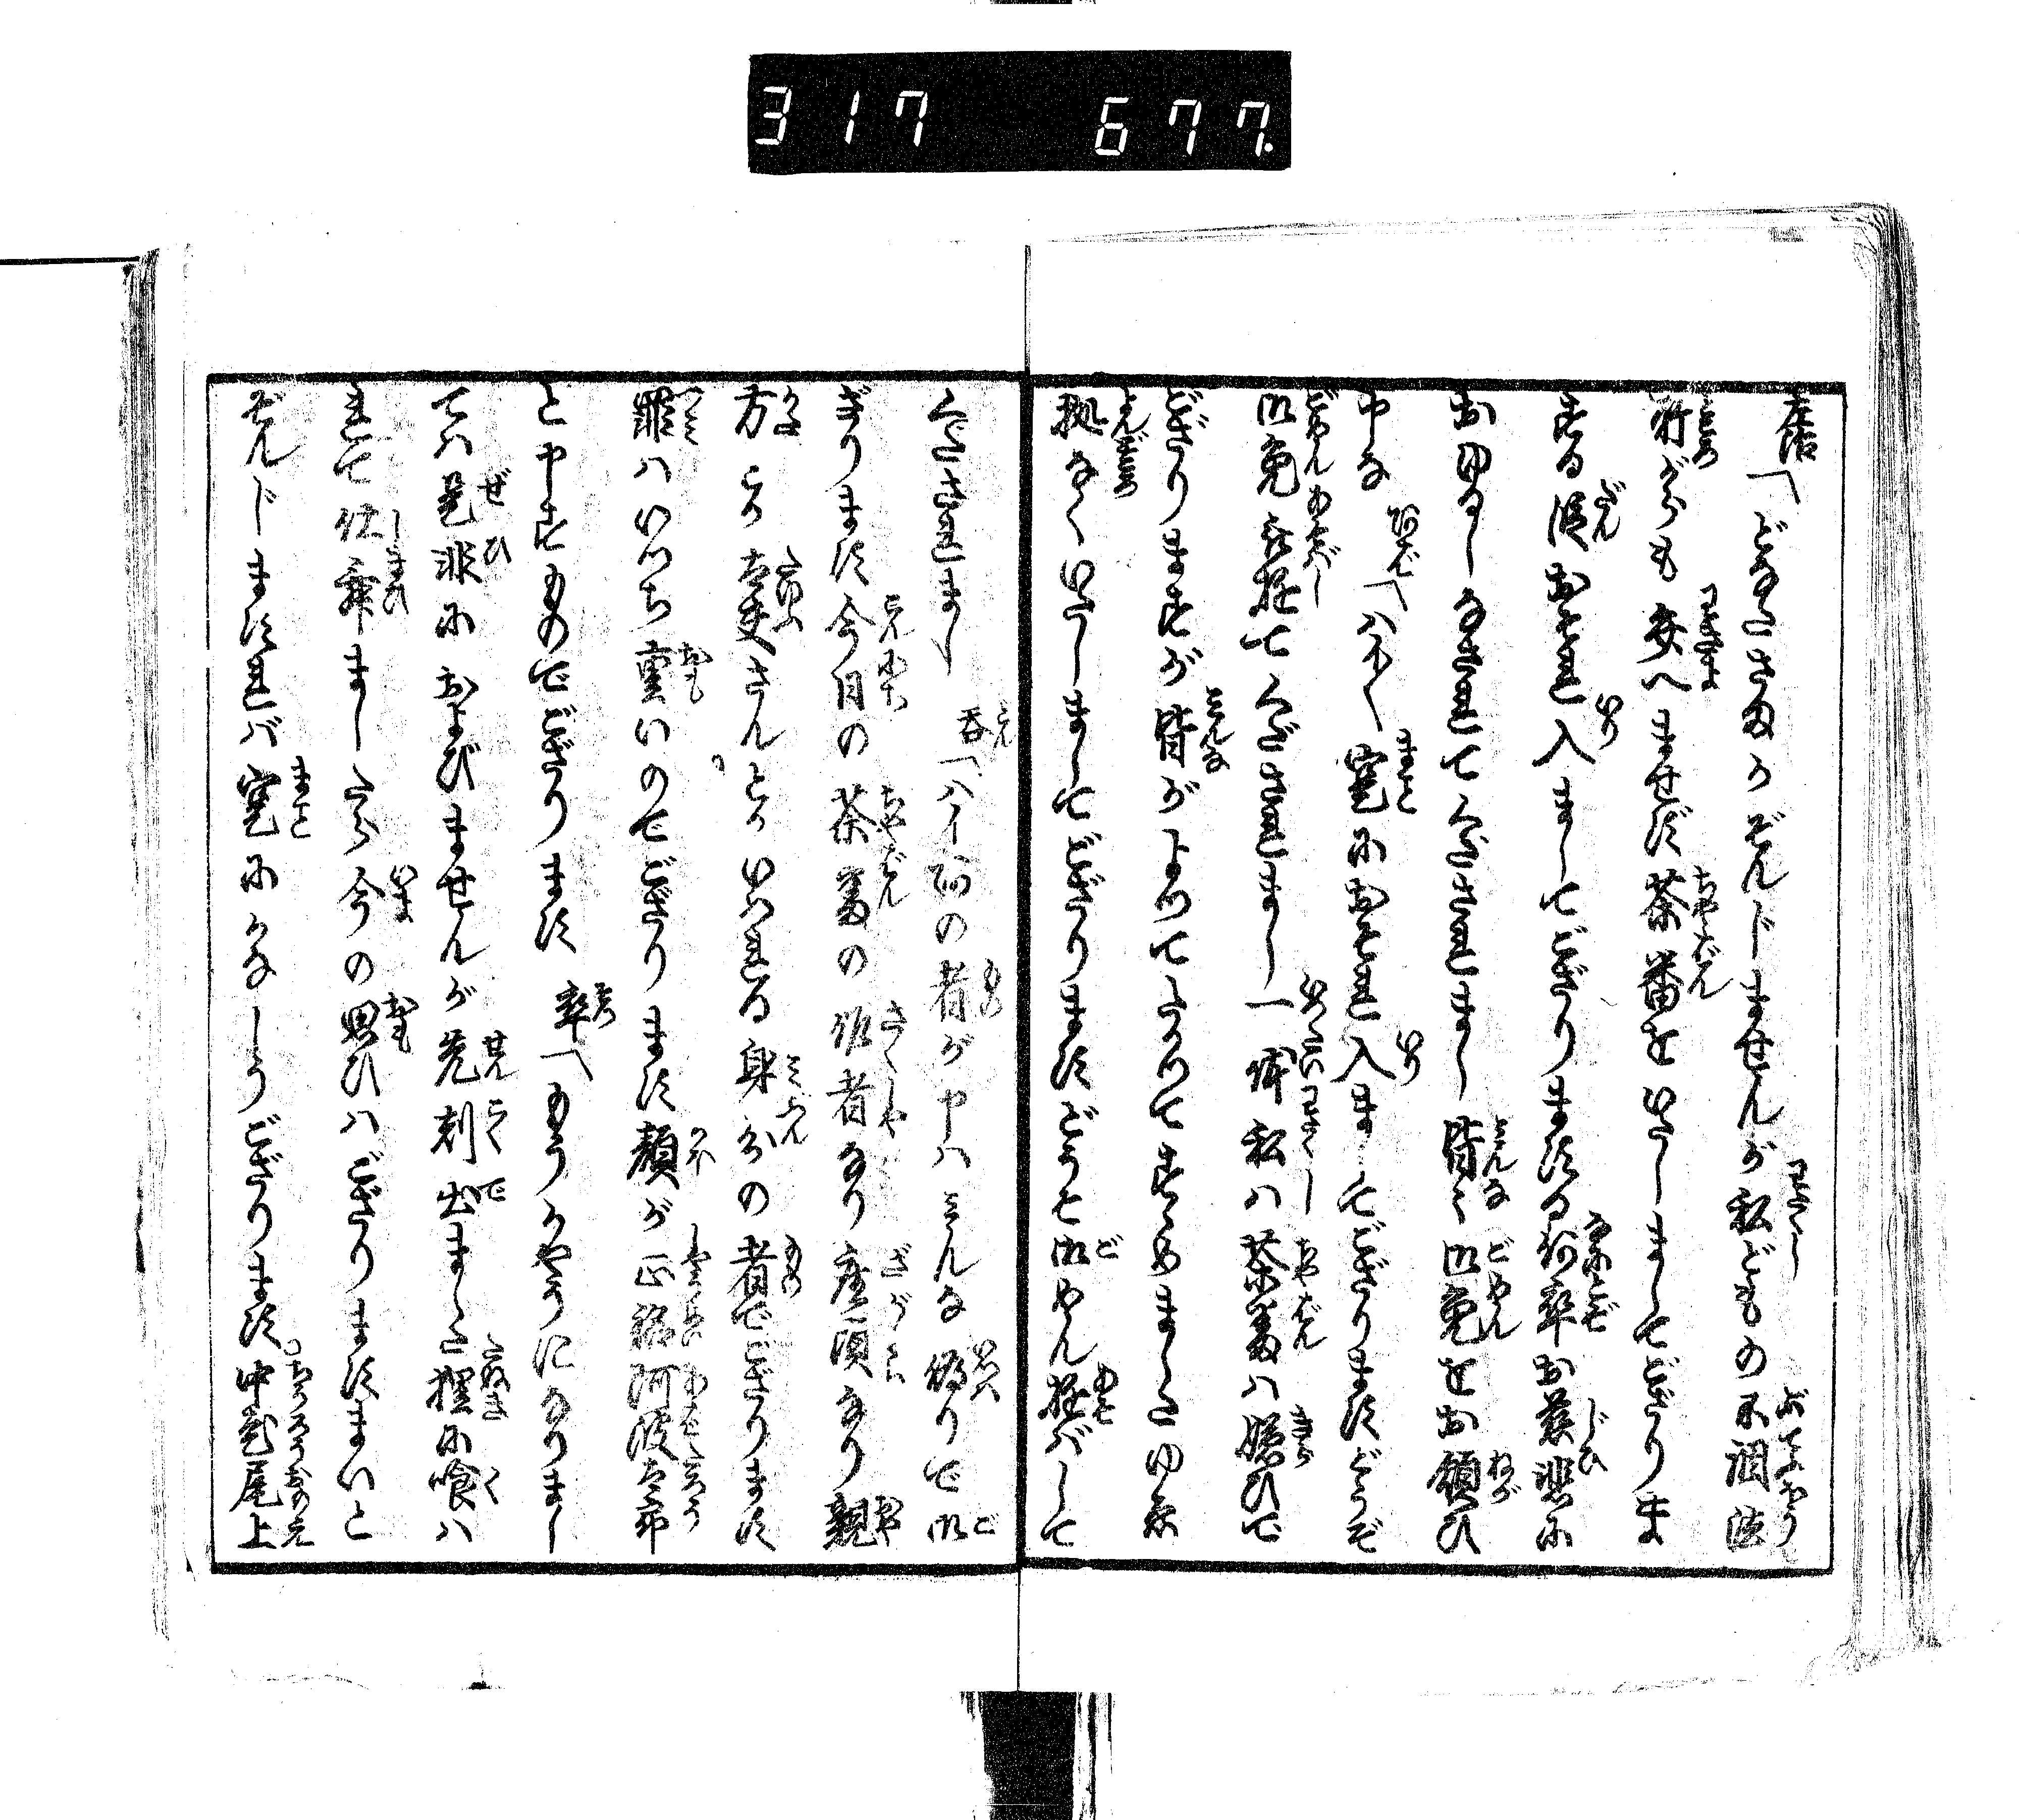 317 677.
左治「どなたさまかぞんじませんが私どもの不調法
所がらも弁へませず茶番をいたしましてござりま
する段おそれ入ましてござりまする何卒お慈悲に
おゆるしなされて下されまし皆々御免をお願ひ
申な「ハイ〳〵寔におそれ入ましてござりますどうぞ
御免被遊て下されまし一体私ハ茶番ハ嫌ひで
ござりますが皆がよつてたかつてすゝめましたゆゑ
拠なくいたしましてござりますどうも御めん遊バして
下されまし呑「ハイ阿の者が申ハみんな偽りで御
ざります今日の茶番の作者なり座頭なり親
方とか太夫さんとかいはれる身分の者でござります
罪ハいつち重いのでござります顔が正銘阿波太郎
と申すものでござります卒「もうかやうになりまし
てハ是非におよびませんが先刻出ました狸に喰ハ
れて仕舞ましたら今の思ひハござりますまいと
ぞんじますれバ寔にかなしうござります中老尾上